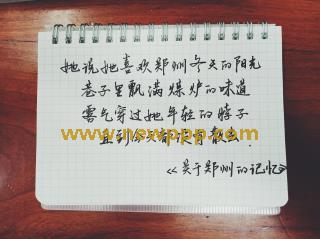 她说她喜欢郑州冬天的阳光
巷子里飘满煤炉的味道
雾气穿过她年轻的脖子
www.newppp.com
直到 都没有散去
《关于郑州的记忆》